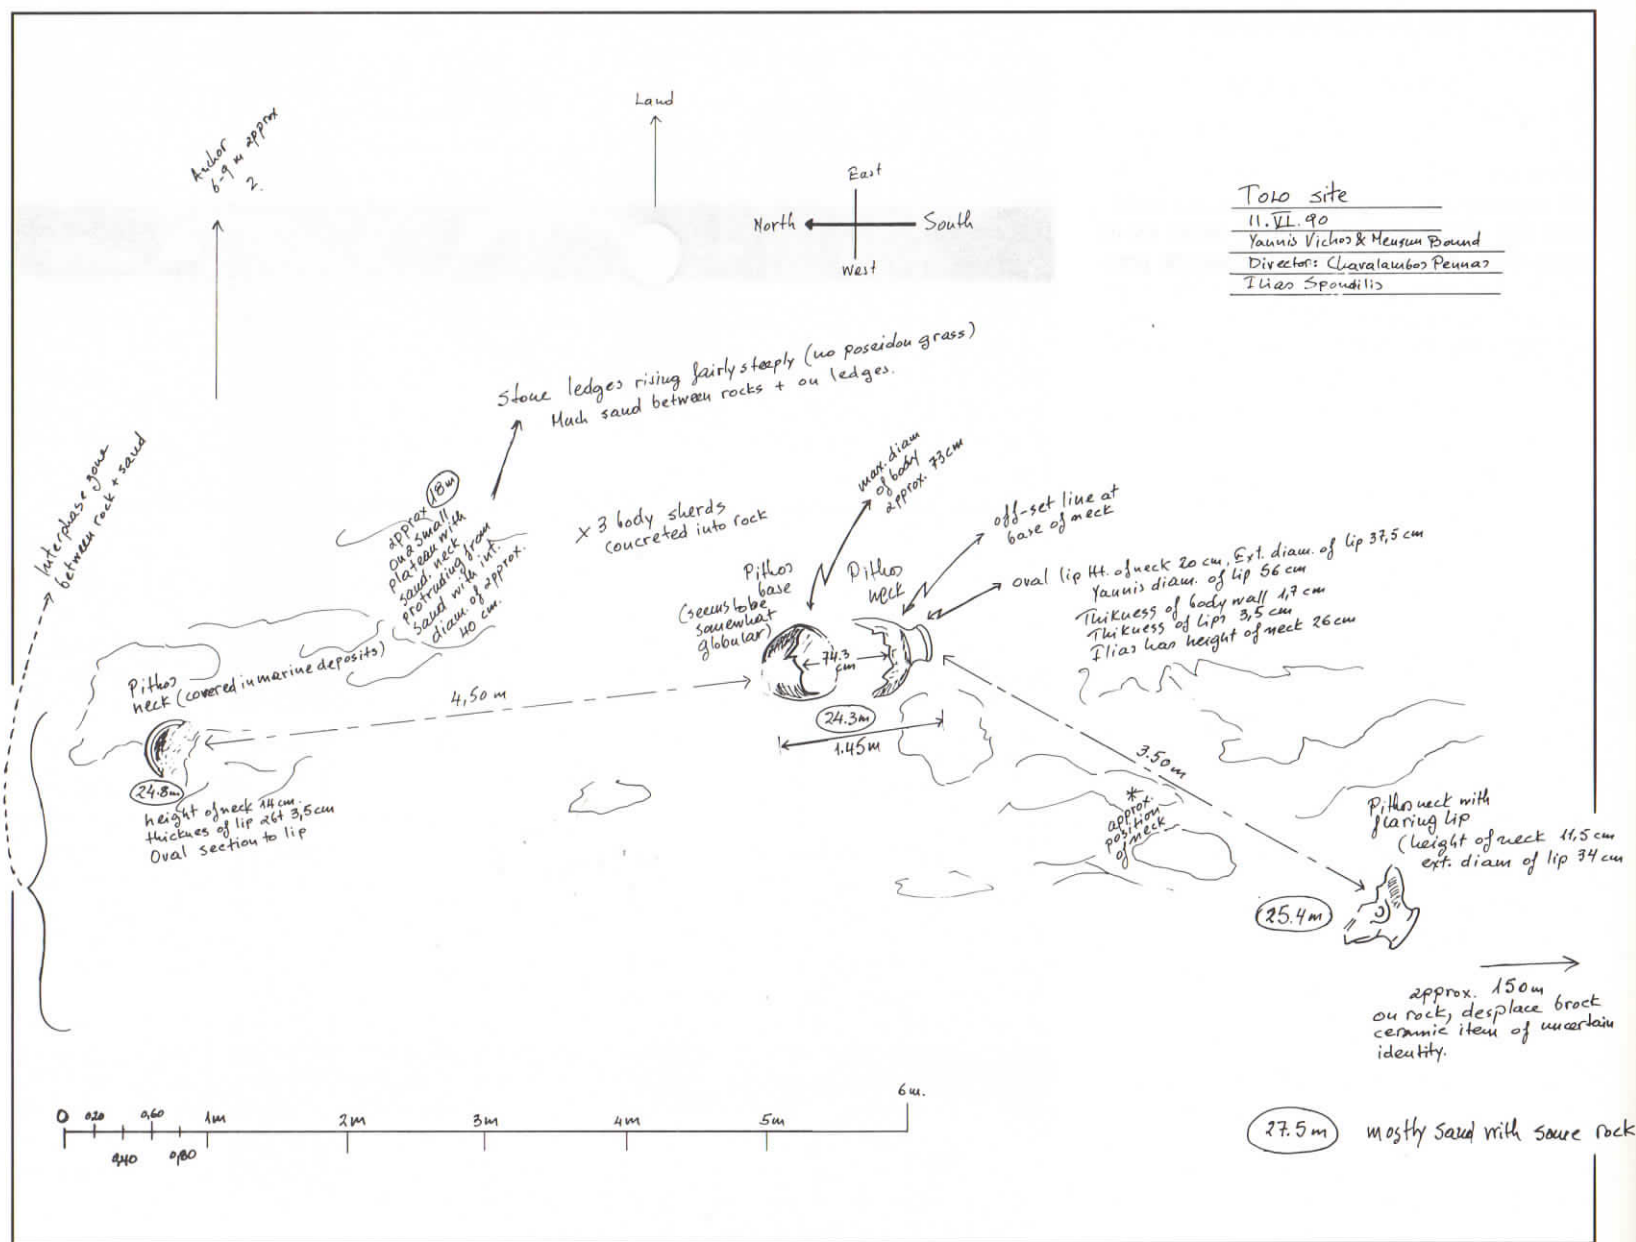 Land
Anchor
6-9 m approx
2.
East
North
South
West
Tolo site
11.VI.90
Yannis Vichos & Mensun Bound
Director: Charalambos Pennas
Ilias Spondilis
Stone ledges rising fairly steeply (no poseidon grass)
Much sand between rocks + on ledges.
Interphase zone
between rock + sand
approx 18m
on a small
plateau with
sand. neck
protruding from
sand with int.
diam. of approx.
40 cm.
x 3 body sherds
concreted into rock
max. diam
of body
approx. 73cm
off-set line at
base of neck
Pithos
base
(seems to be
somewhat
globular)
Pithos
neck
oval lip Ht. of neck 20 cm, Ext. diam. of lip 37,5 cm
Yannis diam. of lip 56 cm
Thikness of body wall 1,7 cm
Thikness of lips 3,5 cm
Ilias has height of neck 26cm
74.3
cm
24.3m
1.45m
Pithos
neck (covered in marine deposits)
4,50 m
24.8m
height of neck 14cm.
thicknes of lip 3,5cm
Oval section to lip
3.50m
*
approx.
position
of neck
Pithos neck with
flaring lip
(height of neck 11,5 cm
ext. diam of lip 34 cm
25.4m
approx. 150m
on rock, desplace brock
ceramic item of uncertain
identity.
0 0,20 0,60 1m 2m 3m 4m 5m 6m.
0,40 0,80
27.5m mostly sand with some rock